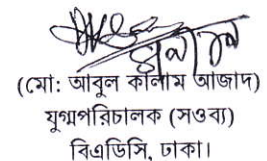 (মো: আবুল কালাম আজাদ)
যুগ্মপরিচালক (সওব্য)
বিএডিসি, ঢাকা।